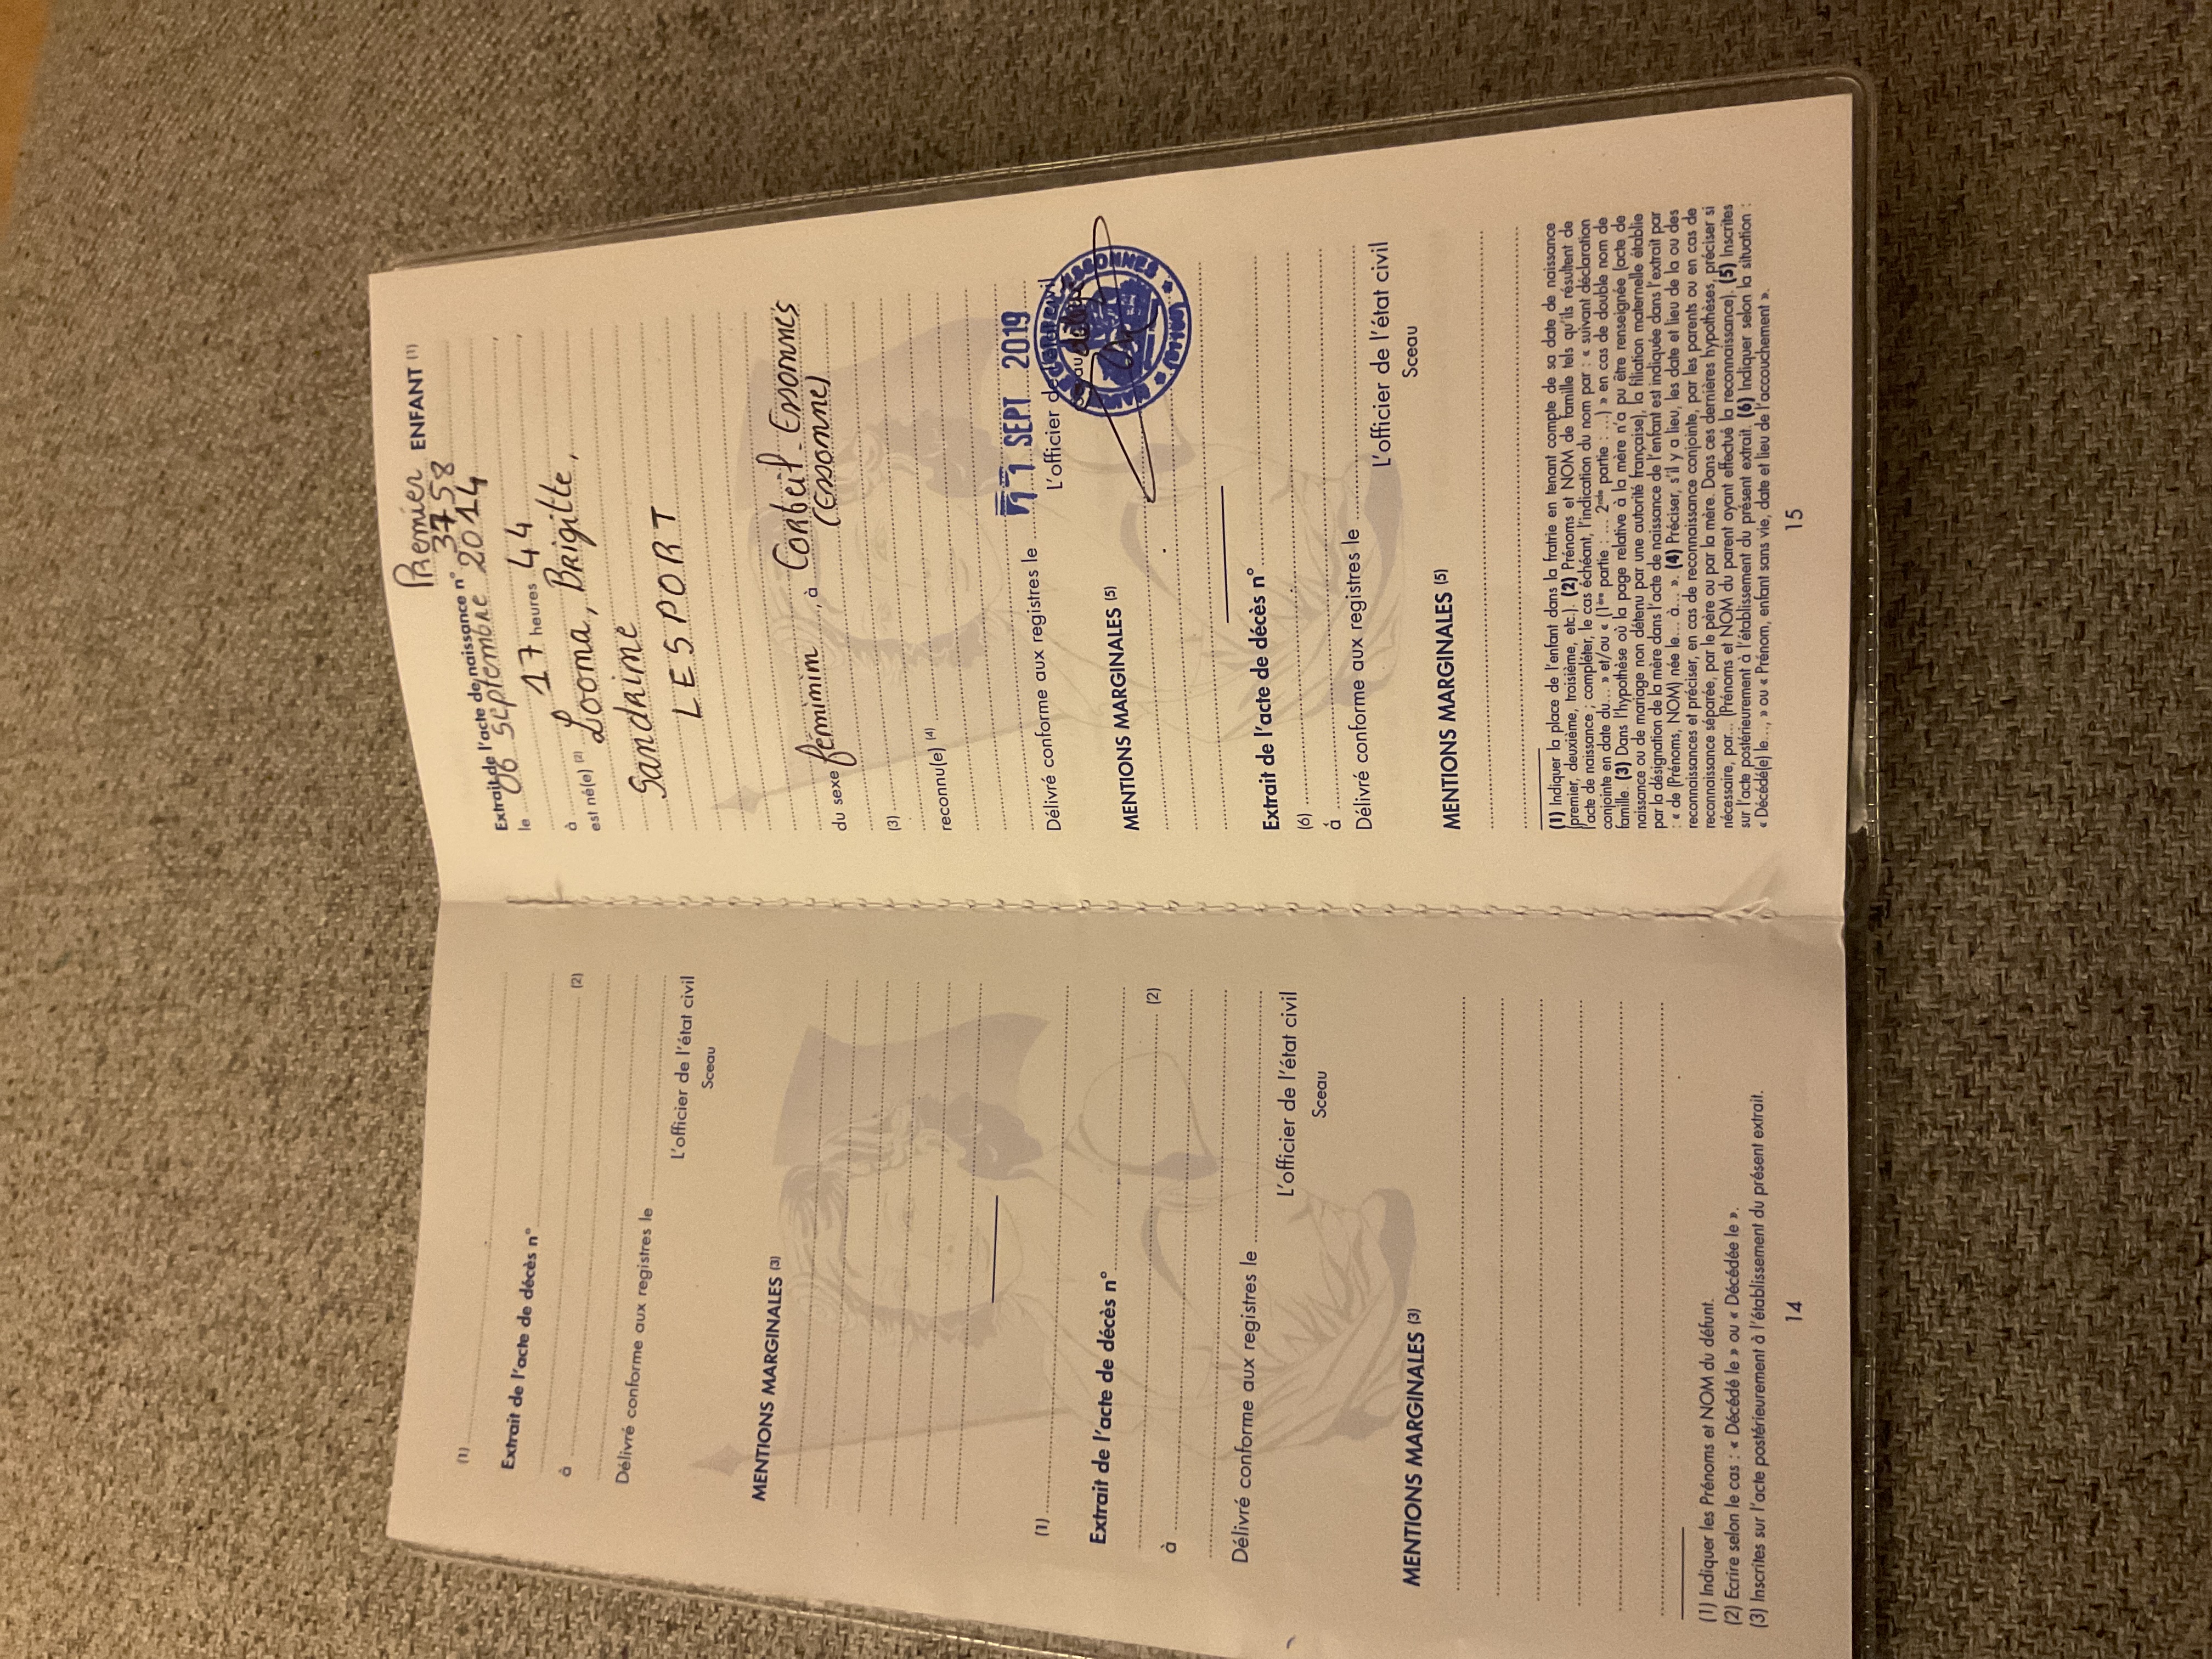 (1)
Extrait de l'acte de décès n°
à (2)
Délivré conforme aux registres le
L'officier de l'état civil
Sceau
MENTIONS MARGINALES (3)
(1)
Extrait de l'acte de décès n°
à (2)
Délivré conforme aux registres le
L'officier de l'état civil
Sceau
MENTIONS MARGINALES (3)
(1) Indiquer les Prénoms et NOM du défunt.
(2) Ecrire selon le cas : « Décédé le » ou « Décédée le ».
(3) Inscrites sur l'acte postérieurement à l'établissement du présent extrait.
14
Premier ENFANT (1)
Extrait de l'acte de naissance n° 3758
le 06 septembre 2014
à 17 heures 44
est né(e) (2) Looma, Brigitte,
Sandrine
LESPORT
du sexe féminin, à Corbeil-Essonnes
(Essonne)
(3)
reconnu(e) (4)
Délivré conforme aux registres le 11 SEPT 2019
L'officier de l'état civil
MENTIONS MARGINALES (5)
Extrait de l'acte de décès n°
(6)
à
Délivré conforme aux registres le
L'officier de l'état civil
Sceau
MENTIONS MARGINALES (5)
(1) Indiquer la place de l'enfant dans la fratrie en tenant compte de sa date de naissance
(premier, deuxième, troisième, etc.). (2) Prénoms et NOM de famille tels qu'ils résultent de
l'acte de naissance ; compléter, le cas échéant, l'indication du nom par : « suivant déclaration
conjointe en date du... » et/ou « (1ère partie : ... 2nde partie : ...) » en cas de double nom de
famille. (3) Dans l'hypothèse où la page relative à la mère n'a pu être renseignée (acte de
naissance ou de mariage non détenu par une autorité française), la filiation maternelle établie
par la désignation de la mère dans l'acte de naissance de l'enfant est indiquée dans l'extrait par
: « de (Prénoms, NOM) née le... à... ». (4) Préciser, s'il y a lieu, les date et lieu de la ou des
reconnaissances et préciser, en cas de reconnaissance conjointe, par les parents ou en cas de
reconnaissance séparée, par le père ou par la mère. Dans ces dernières hypothèses, préciser si
nécessaire, par... (Prénoms et NOM du parent ayant effectué la reconnaissance). (5) Inscrites
sur l'acte postérieurement à l'établissement du présent extrait. (6) Indiquer selon la situation :
« Décédé(e) le..., » ou « Prénom, enfant sans vie, date et lieu de l'accouchement ».
15